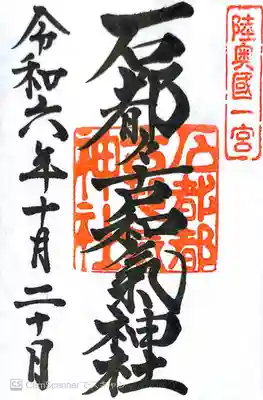 陸奥國一宮
石都々古和氣神社
石都都
神社
令和六年十月二十日
CS CamScanner